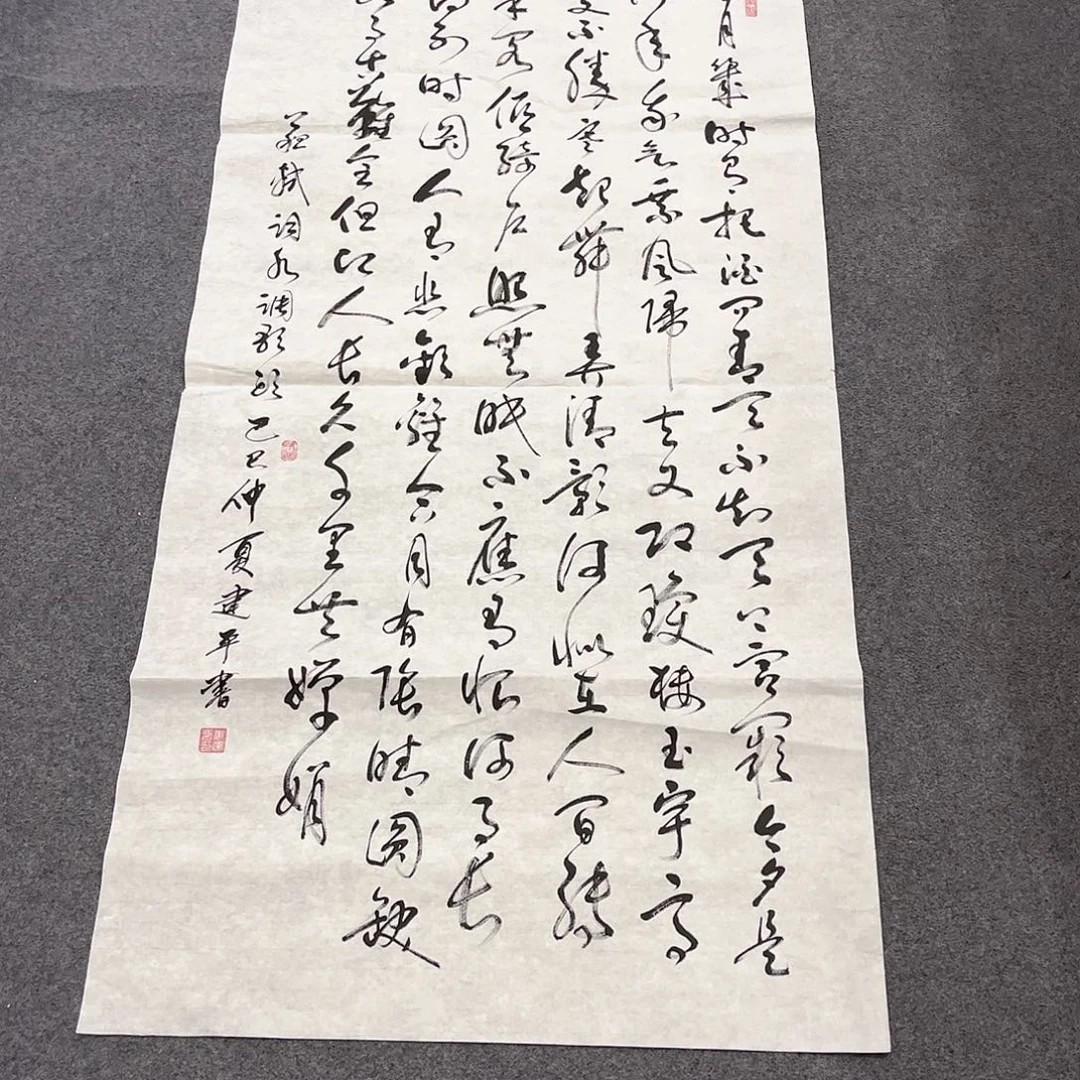 月幾時有把酒問青天不知天上宮闕今夕是
何年我欲乘風歸去又恐瓊樓玉宇高
處不勝寒起舞弄清影何似在人間轉
朱閣低綺戶照無眠不應有恨何事長
向別時圓人有悲歡離合月有陰晴圓缺
此事古難全但願人長久千里共嬋娟
蘇軾詞水調歌頭己丑仲夏建平書